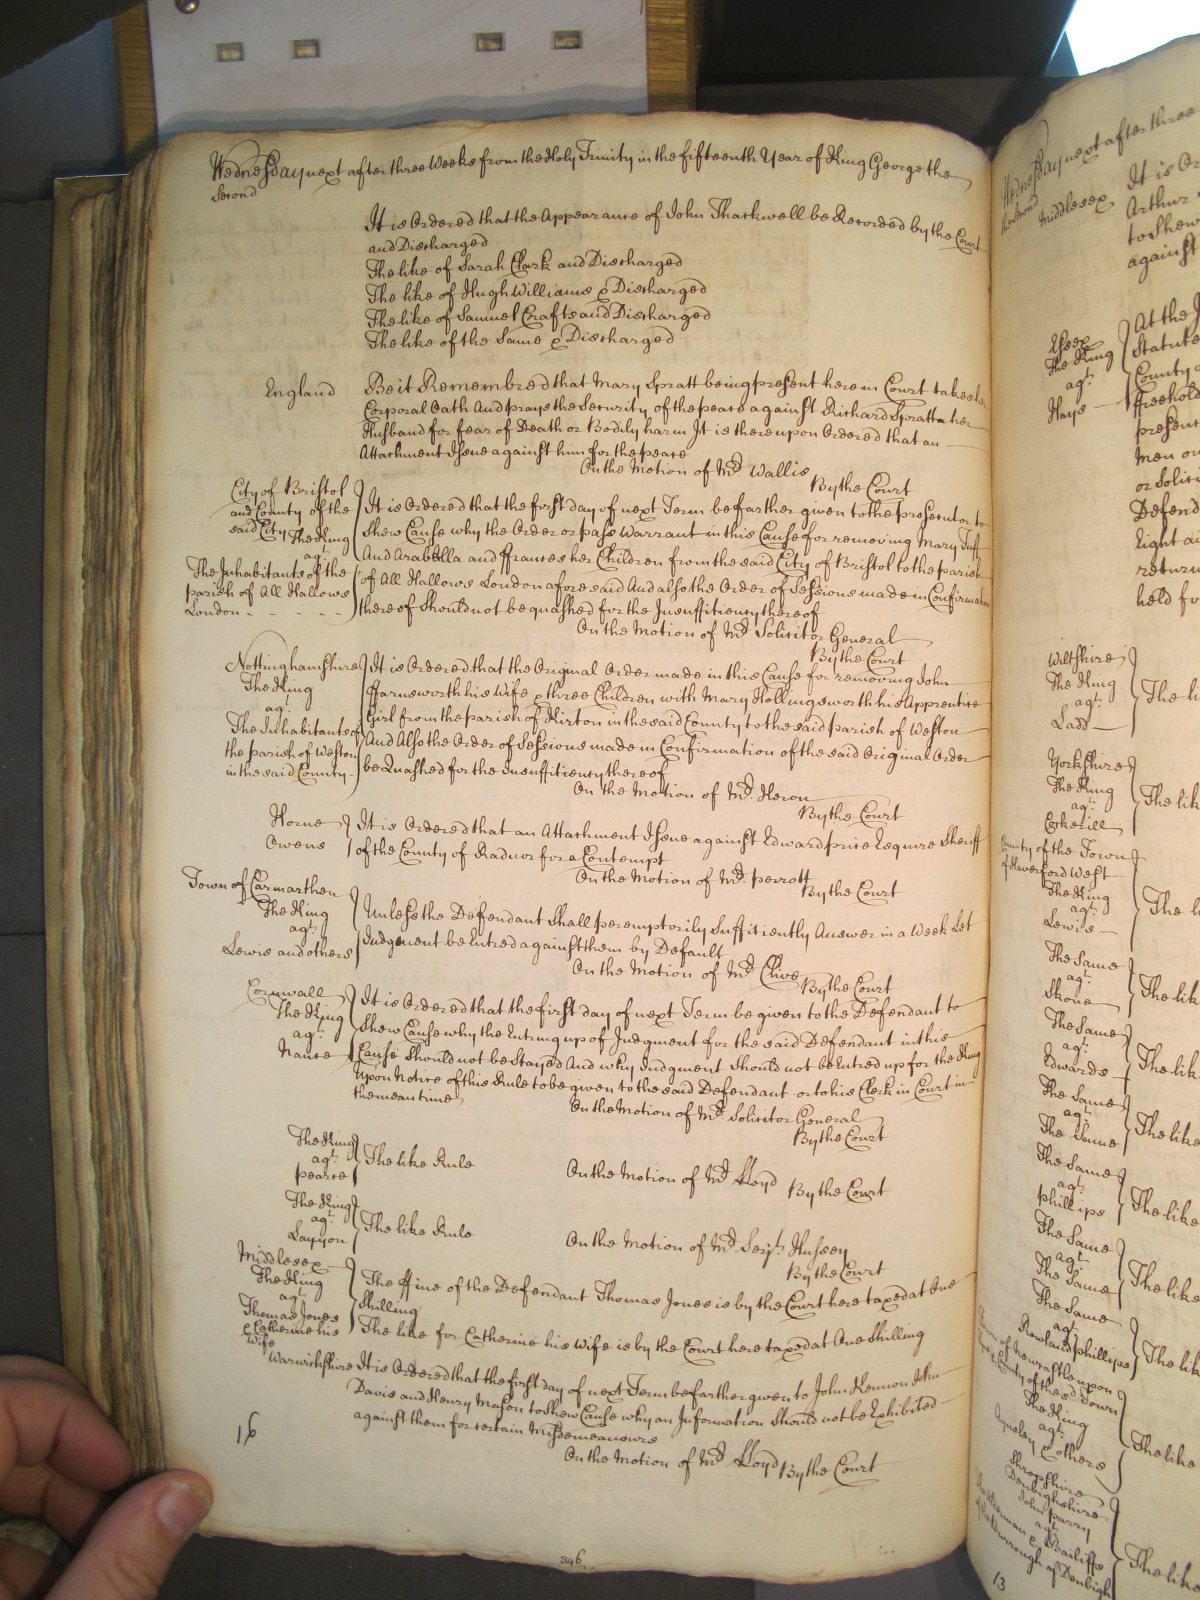 Wednesday next after three Weeks from the Holy Trinity in the fifteenth Year of King George the
Second
It is Ordered that the Appearance of John Tharkwell be Recorded by the Court
and Discharged
The like of Sarah Clark and Discharged
The like of Hugh Williams & Discharged
The like of Samuel Crafts and Discharged
The like of the Same & Discharged
England
Be it Remembred that Mary Spratt being present here in Court takes her
Corporal Oath And prays the Security of the peace against Richard Spratt her
Husband for fear of Death or Bodily harm It is thereupon Ordered that an
Attachment Issue against him for the peace
On the Motion of Mr. Wallis
By the Court
City of Bristol
and County of the
said City The King
agt.
The Inhabitants of the
parish of All Hallows
London
It is Ordered that the first day of next Term be farther given to the prosecutor to
Shew Cause why the Order or pass Warrant in this Cause for removing Mary
And Arabella and Frances her Children from the said City of Bristol to the parish
of All Hallows London aforesaid And also the Order of Sessions made in Confirmation
thereof Should not be quashed for the Insufficiency thereof
On the Motion of Mr. Solicitor General
By the Court
Nottinghamshire
The King
agt.
The Inhabitants of
the parish of Weston
in the said County
It is Ordered that the Original Order made in this Cause for removing John
Farnsworth his Wife & three Children with Mary Hollingsworth his Apprentice
Girl from the parish of Kirton in the said County to the said parish of Weston
And Also the Order of Sessions made in Confirmation of the said Original Order
be Quashed for the Insufficiency thereof
On the Motion of Mr. Heron
By the Court
Horne
Owens
It is Ordered that an Attachment Issue against Edward price Esquire Sheriff
of the County of Radnor for a Contempt
On the Motion of Mr. perrott
By the Court
Town of Carmarthen
The King
agt.
Lewis and others
Unless the Defendant Shall peremptorily Sufficiently Answer in a Week Let
Judgment be Entred against them by Default
On the Motion of Mr. Clive
By the Court
Cornwall
The King
agt.
Nance
It is Ordered that the first day of next Term be given to the Defendant to
Shew Cause why the Entring up of Judgment for the said Defendant in this
Cause Should not be Stayed And why Judgment Should not be Entred up for the King
Upon Notice of this Rule to be given to the said Defendant or to his Clerk in Court in
the mean time
On the Motion of Mr. Solicitor General
By the Court
The King
agt.
pearce
The like Rule
On the Motion of Mr. Lloyd
By the Court
The King
agt.
Lanyon
The like Rule
On the Motion of Mr. Serjt. Hussey
By the Court
Middlesex
The King
agt.
Thomas Jones
& Catherine his
Wife
The ffine of the Defendant Thomas Jones is by the Court here taxed at One
Shilling
The like for Catherine his Wife is by the Court here taxed at One Shilling
Warwickshire
It is Ordered that the first day of next Term be farther given to John Kennon John
Davis and Henry Mason to Shew Cause why an Information Should not be Exhibited
against them for certain Misdemeanours
On the Motion of Mr. Lloyd
By the Court
16
346
Wednesday next after three
Middlesex
It is Or
Arthur
to Shew
against
Essex
The King
agt.
Hays
At the
Statute
County
ffreehold
present
men
or Solici
Defend
right
return
held fo
Wiltshire
The King
agt.
Lass
The li
Yorkshire
The King
agt.
Corkerill
The lik
County of the Town
of Haverford West
The King
agt.
Lewis
The li
The Same
agt.
Skone
The lik
The Same
agt.
Edwards
The lik
The Same
agt.
The Same
The like
The Same
agt.
phillips
The like
The Same
agt.
The Same
The like
The Same
agt.
Rowland phillips
The lik
Town of Newcastle upon
The King
agt.
Aynsley & others
The like
Shropshire
Denbighshire
John parry
agt.
Bailiffs
of the Borrough of Denbigh
The like
13